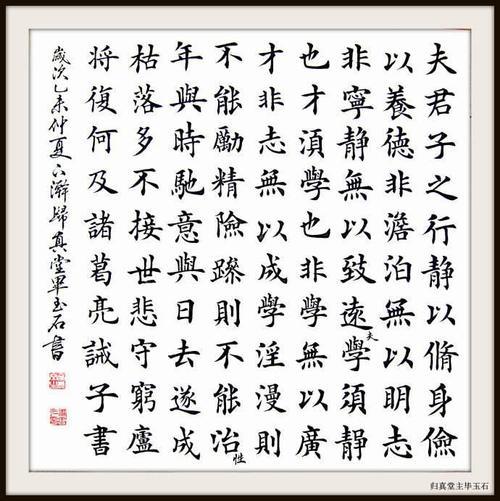 夫君子之行静以脩身儉
以養德非澹泊無以明志
非寧静無以致遠夫學須静
也才湏學也非學無以廣
才非志無以成學淫漫則
不能勵精險躁則不能治性
年與時馳意與日去遂成
枯落多不接世悲守窮廬
將復何及諸葛亮誡子書
歲次乙未仲夏下澣歸真堂畢玉石書
归真堂主毕玉石